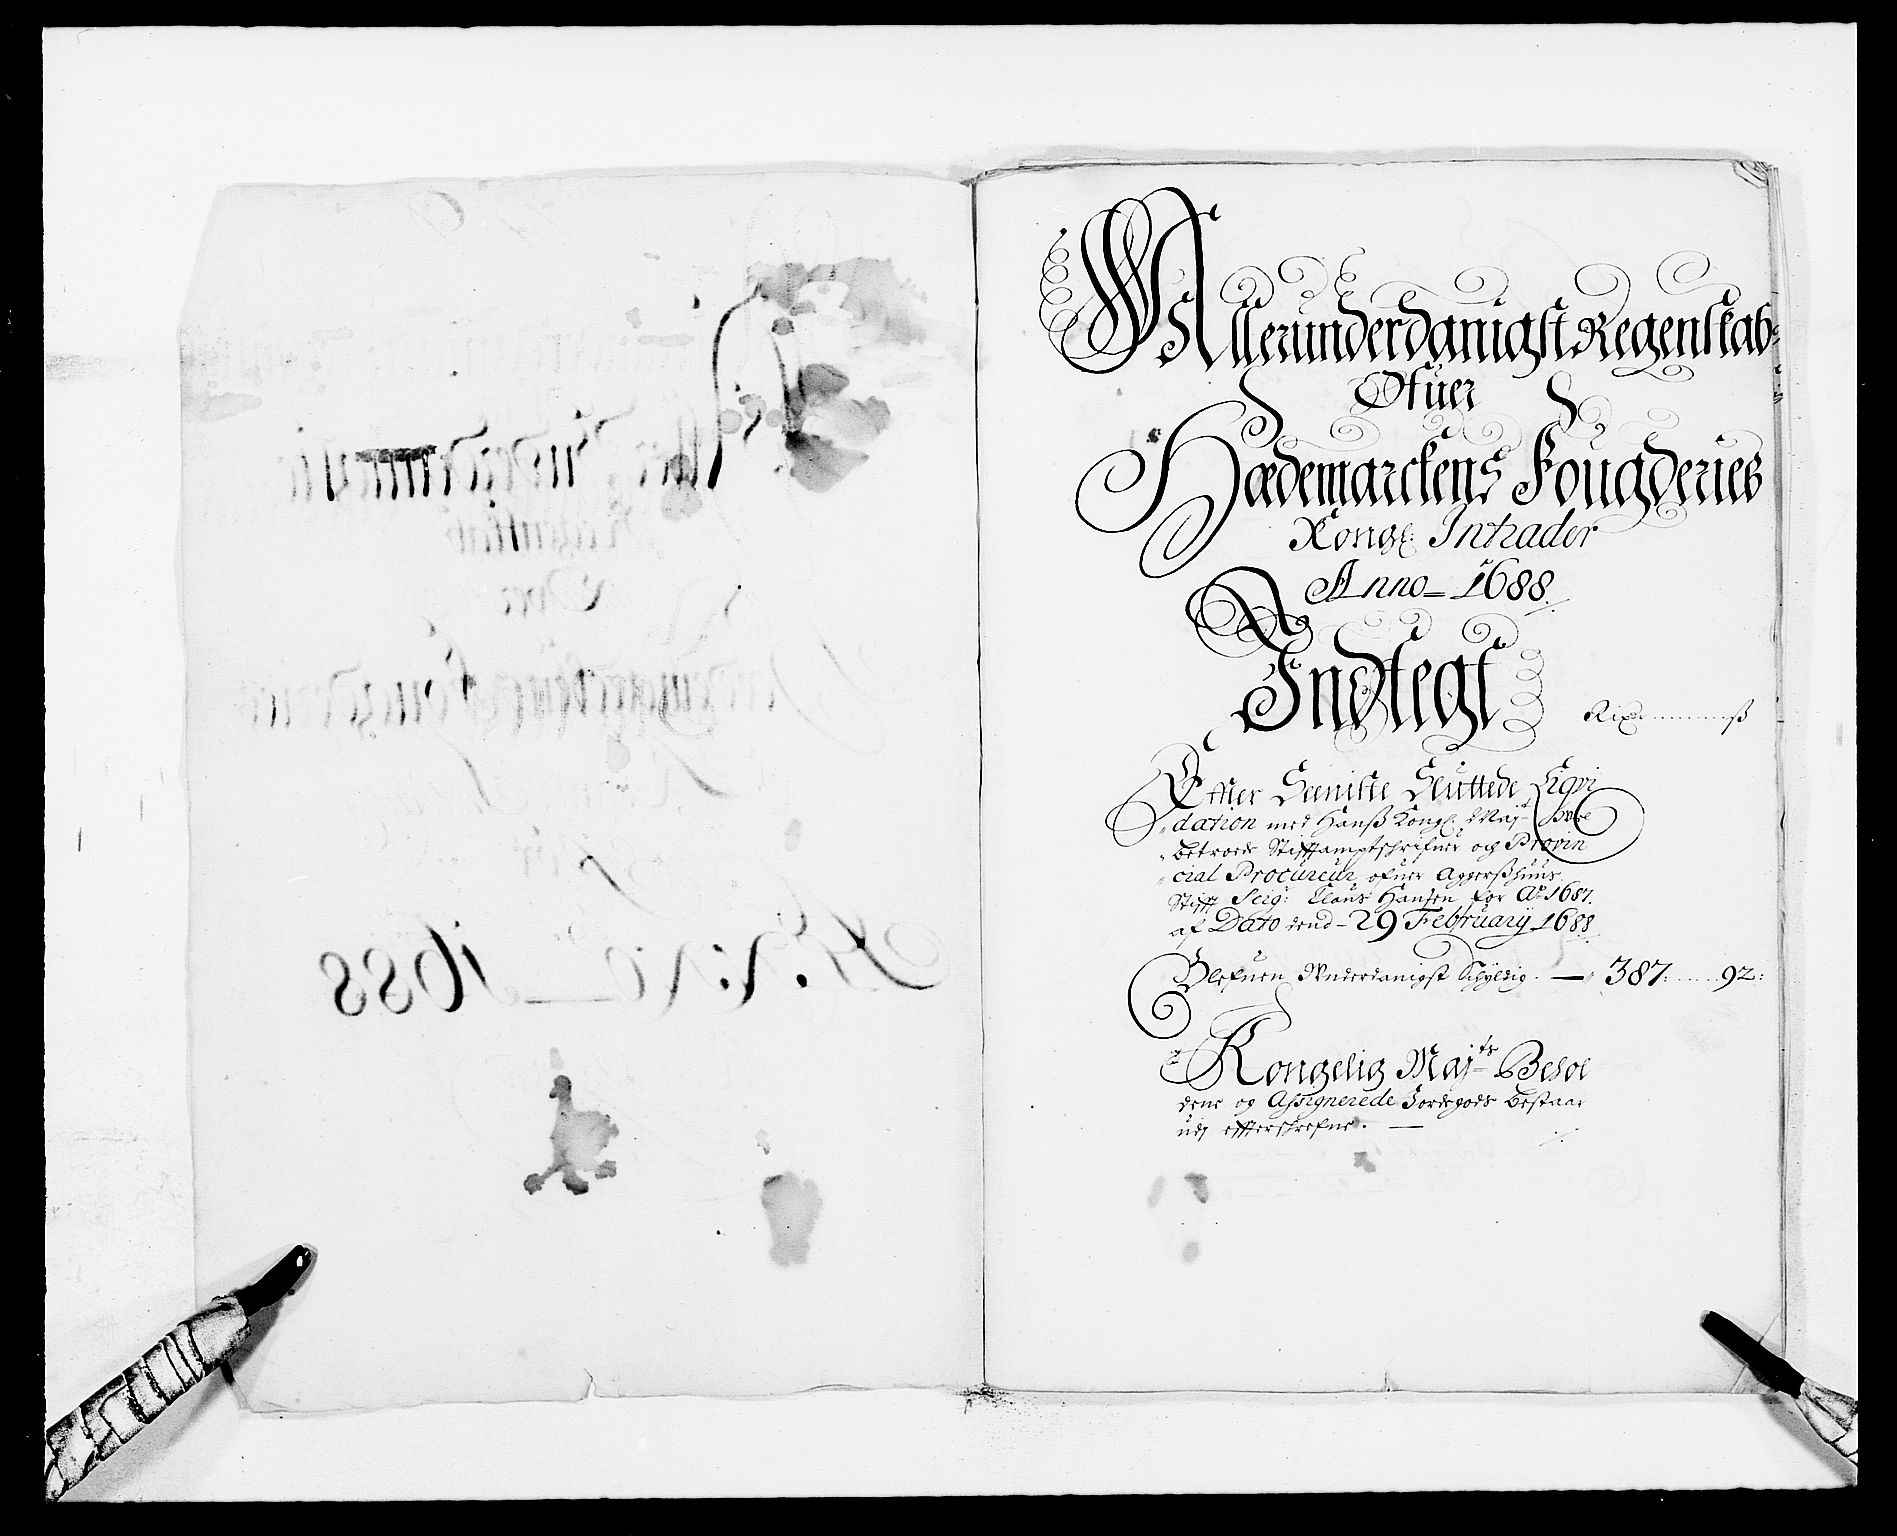 Allerunderdanigst Regenskab
Ofuer
Hædemarckens Fougderies
Kongl: Intrader
Anno 1688.
Indtegt
Rixdr ß
Effter Seeniste Sluttede Liqvi
dation med Hanß Kongl: Maj:
betroede Stifftamptschrifuer og Provin
cial Procureur ofuer Aggerßhuus
Stifft Seig: Claus Hansen for Ao 1687.
af Dato dend 29 February 1688
Blefuen Underdanigst Schyldig. — 387: 92:
Kongelig Majts Behol
dene og Assignerede Jordegods bestaar
udj effterschrefne. —